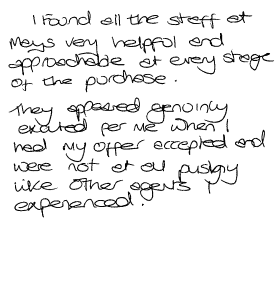 I found all the staff at
Mays very helpful and
approachable at every stage
of the purchase.
They appeared genuinly
excited for me when I
had my offer accepted and
were not at all pushy
like other agents I
experienced.